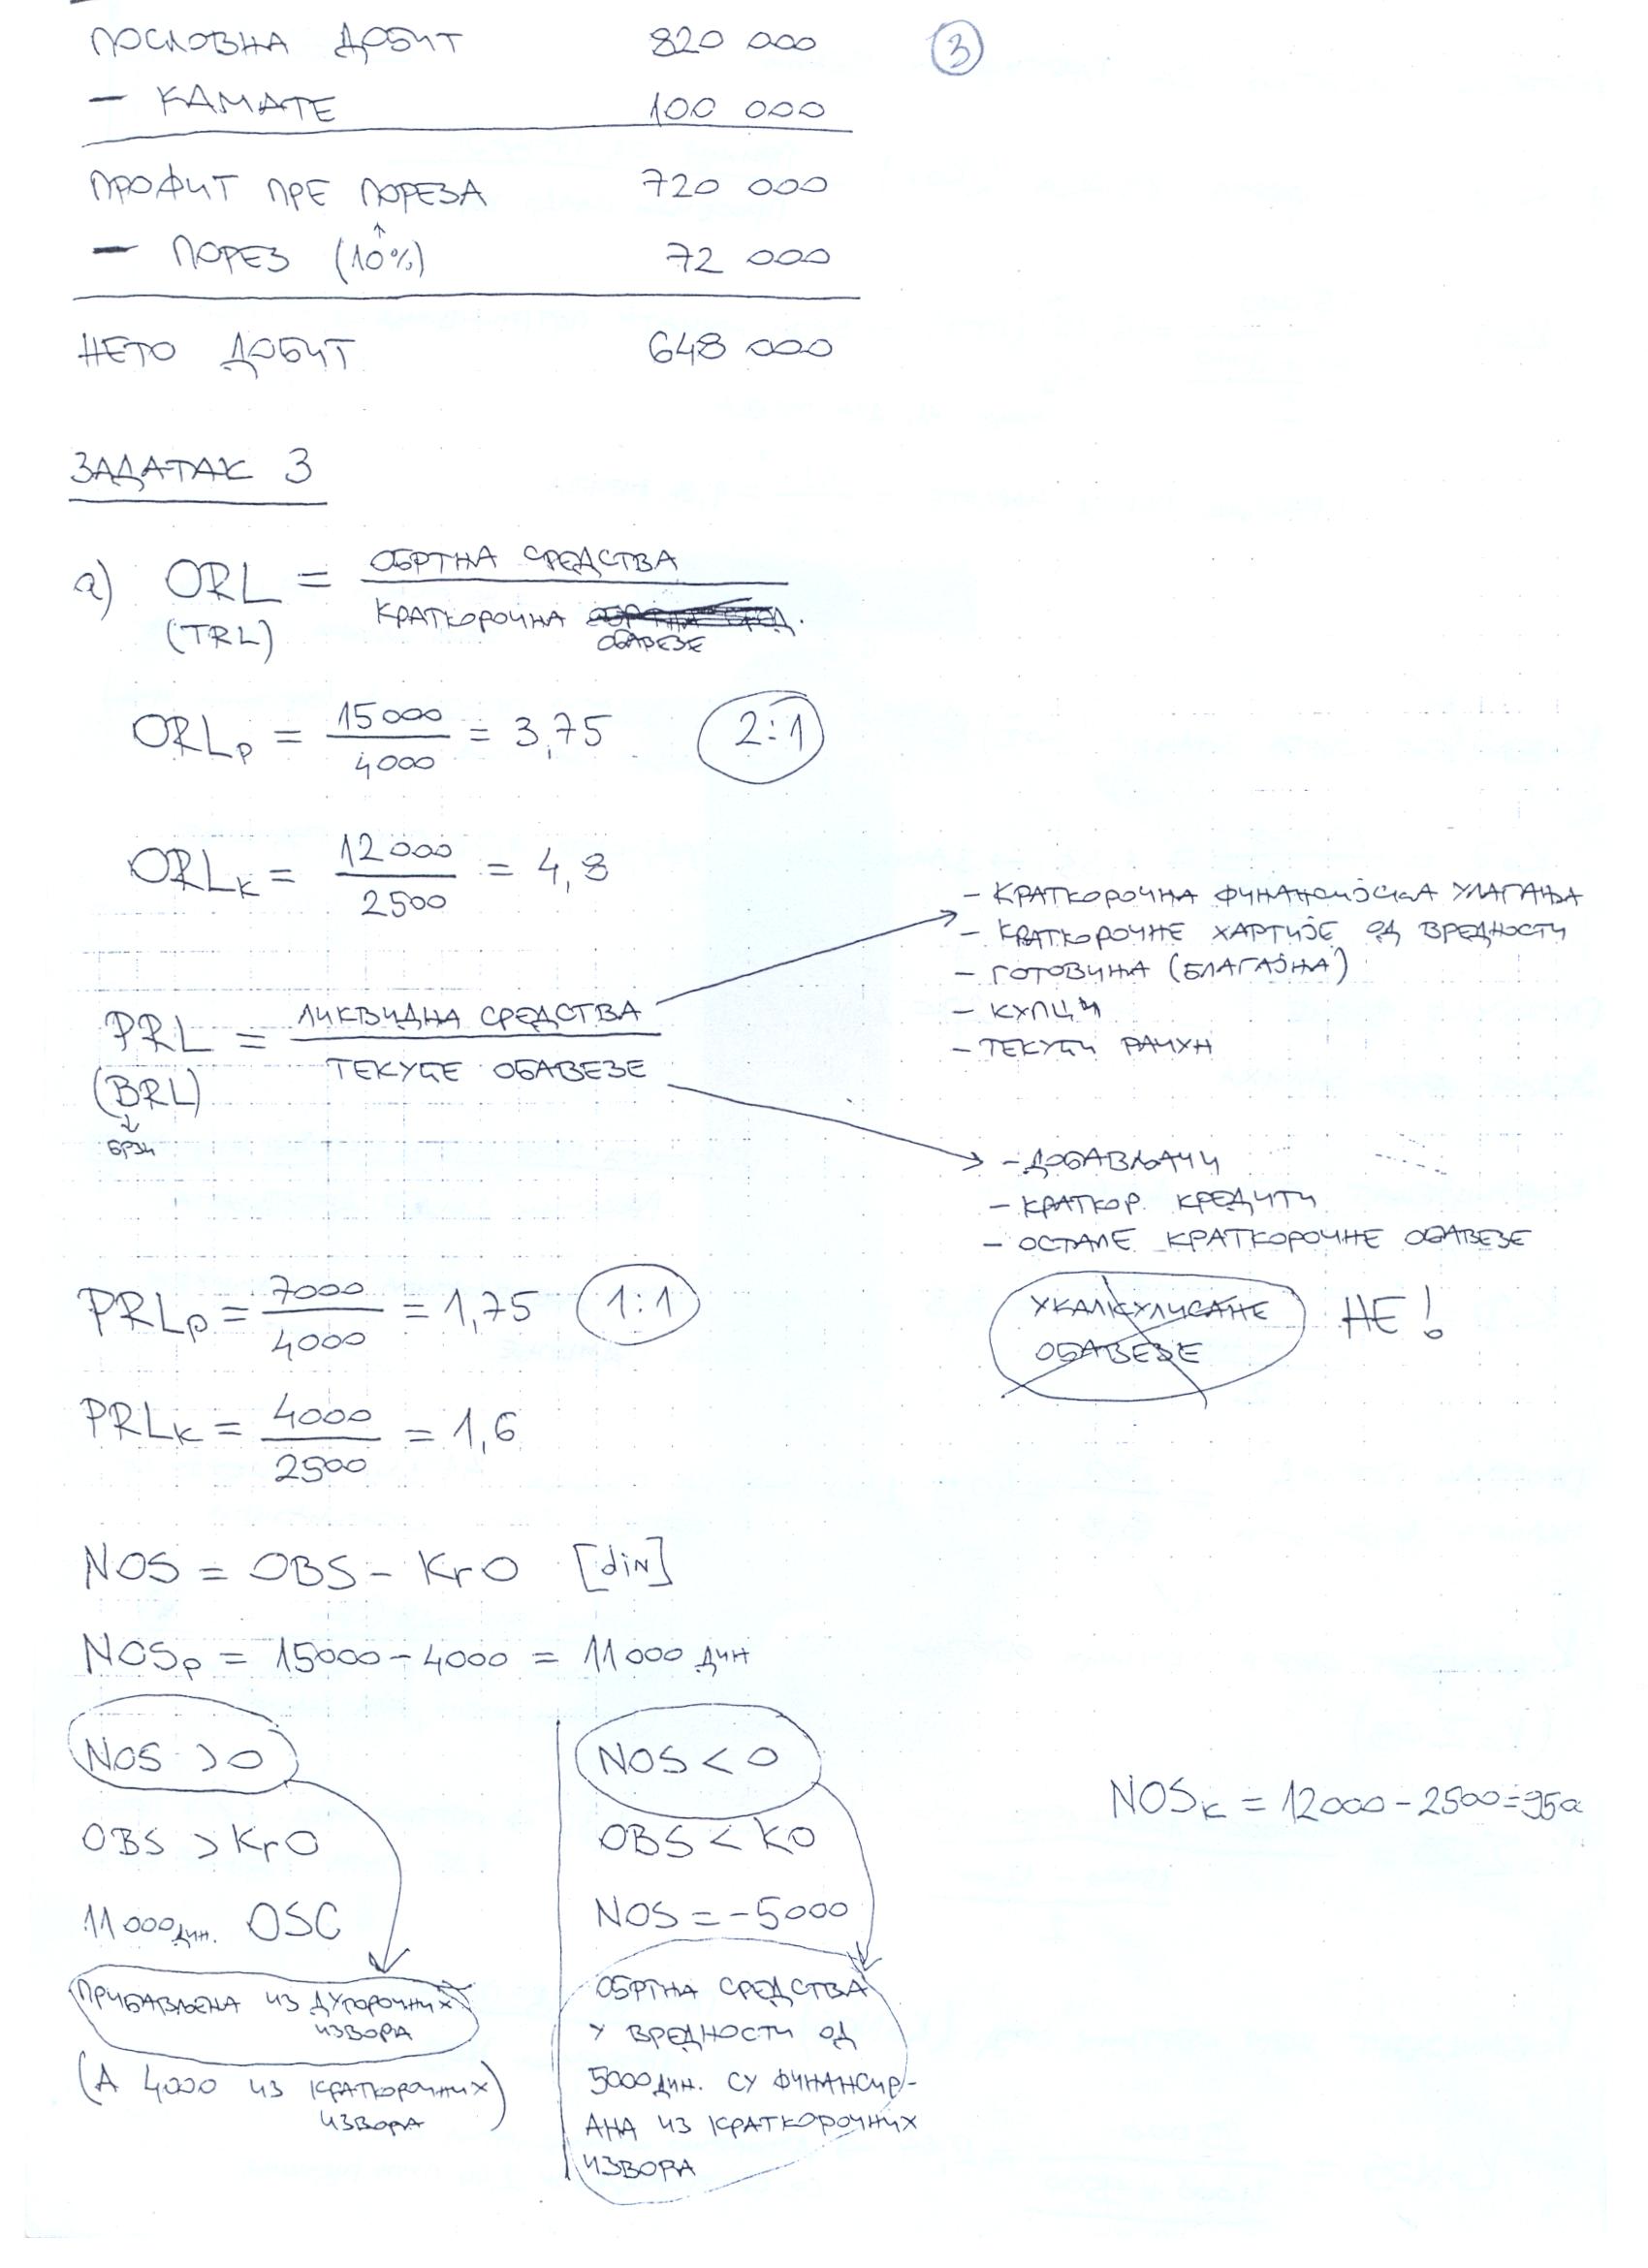 ПОСЛОВНА ДОБИТ 820 000
③
– КАМАТЕ 100 000
ПРОФИТ ПРЕ ПОРЕЗА 720 000
– ПОРЕЗ (10%) 72 000
НЕТО ДОБИТ 648 000
ЗАДАТАК 3
а) ORL = ОБРТНА СРЕДСТВА
(TRL) КРАТКОРОЧНА
ОБАВЕЗЕ
ORLp = 15000 / 4000 = 3,75 2:1
ORLк = 12000 / 2500 = 4,8
PRL = ЛИКВИДНА СРЕДСТВА
ТЕКУЋЕ ОБАВЕЗЕ
(BRL)
БРЗИ
– КРАТКОРОЧНА ФИНАНСИЈСКА УЛАГАЊА
– КРАТКОРОЧНЕ ХАРТИЈЕ ОД ВРЕДНОСТИ
– ГОТОВИНА (БЛАГАЈНА)
– КУПЦИ
– ТЕКУЋИ РАЧУН
– ДОБАВЉАЧИ
– КРАТКОР. КРЕДИТИ
– ОСТАЛЕ КРАТКОРОЧНЕ ОБАВЕЗЕ
УКАЛКУЛИСАНЕ
ОБАВЕЗЕ
НЕ!
PRLp = 7000 / 4000 = 1,75 1:1
PRLк = 4000 / 2500 = 1,6
NOS = OBS – KrO [din]
NOSp = 15000 – 4000 = 11000 дин
NOS > 0
OBS > KrO
11000 дин. OSC
ПРИБАВЉЕНА ИЗ ДУГОРОЧНИХ
ИЗВОРА
(А 4000 ИЗ КРАТКОРОЧНИХ
ИЗВОРА)
NOS < 0
OBS < KO
NOS = –5000
ОБРТНА СРЕДСТВА
У ВРЕДНОСТИ ОД
5000 дин. СУ ФИНАНСИР-
АНА ИЗ КРАТКОРОЧНИХ
ИЗВОРА
NOSк = 12000 – 2500 =